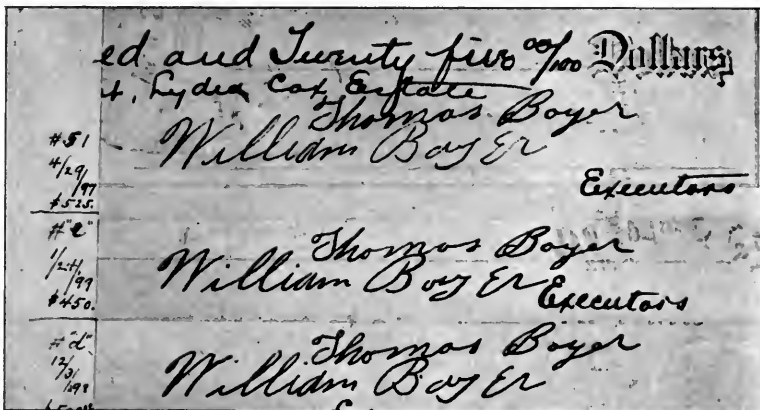 ed and Twenty five 00/100 Dollars
t, Lydia Cox, Estate
Thomas Boyer
William Boy Er
#51
4/29/97
$525.
Executors
#"e"
1/24/99
$450.
Thomas Boyer
William Boy Er
Executors
#"d"
12/31/
Thomas Boyer
William Boy Er